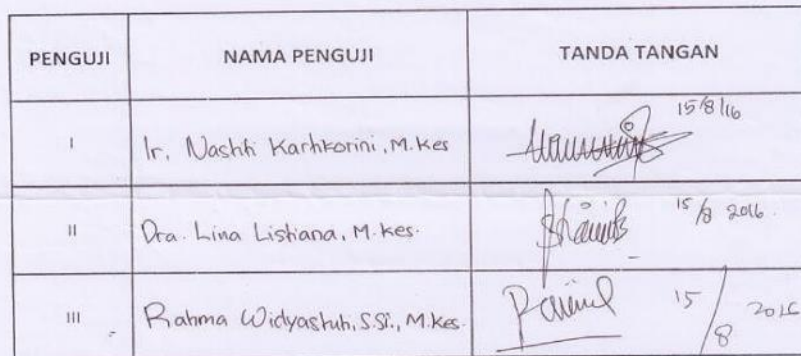 PENGUJI NAMA PENGUJI TANDA TANGAN
I Ir. Nashti Kartikorini, M.Kes 15/8/16
II Dra. Lina Listiana, M.Kes. 15/8 2016.
III Rahma Widyastuti, S.Si., M.Kes. 15/8 2016